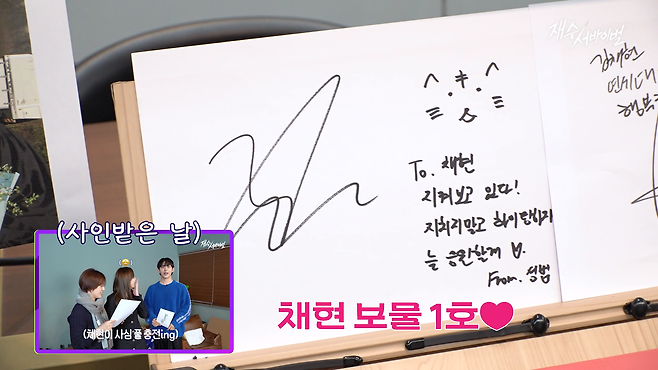 재수서바이벌
To. 채현
지켜보고 있다!
지치지말고 하이탄까지
늘 응원할게
From. 정범
김채현
연세대
행복
(사인받은 날)
(채현이 사심 풀 충전ing)
채현 보물 1호♥